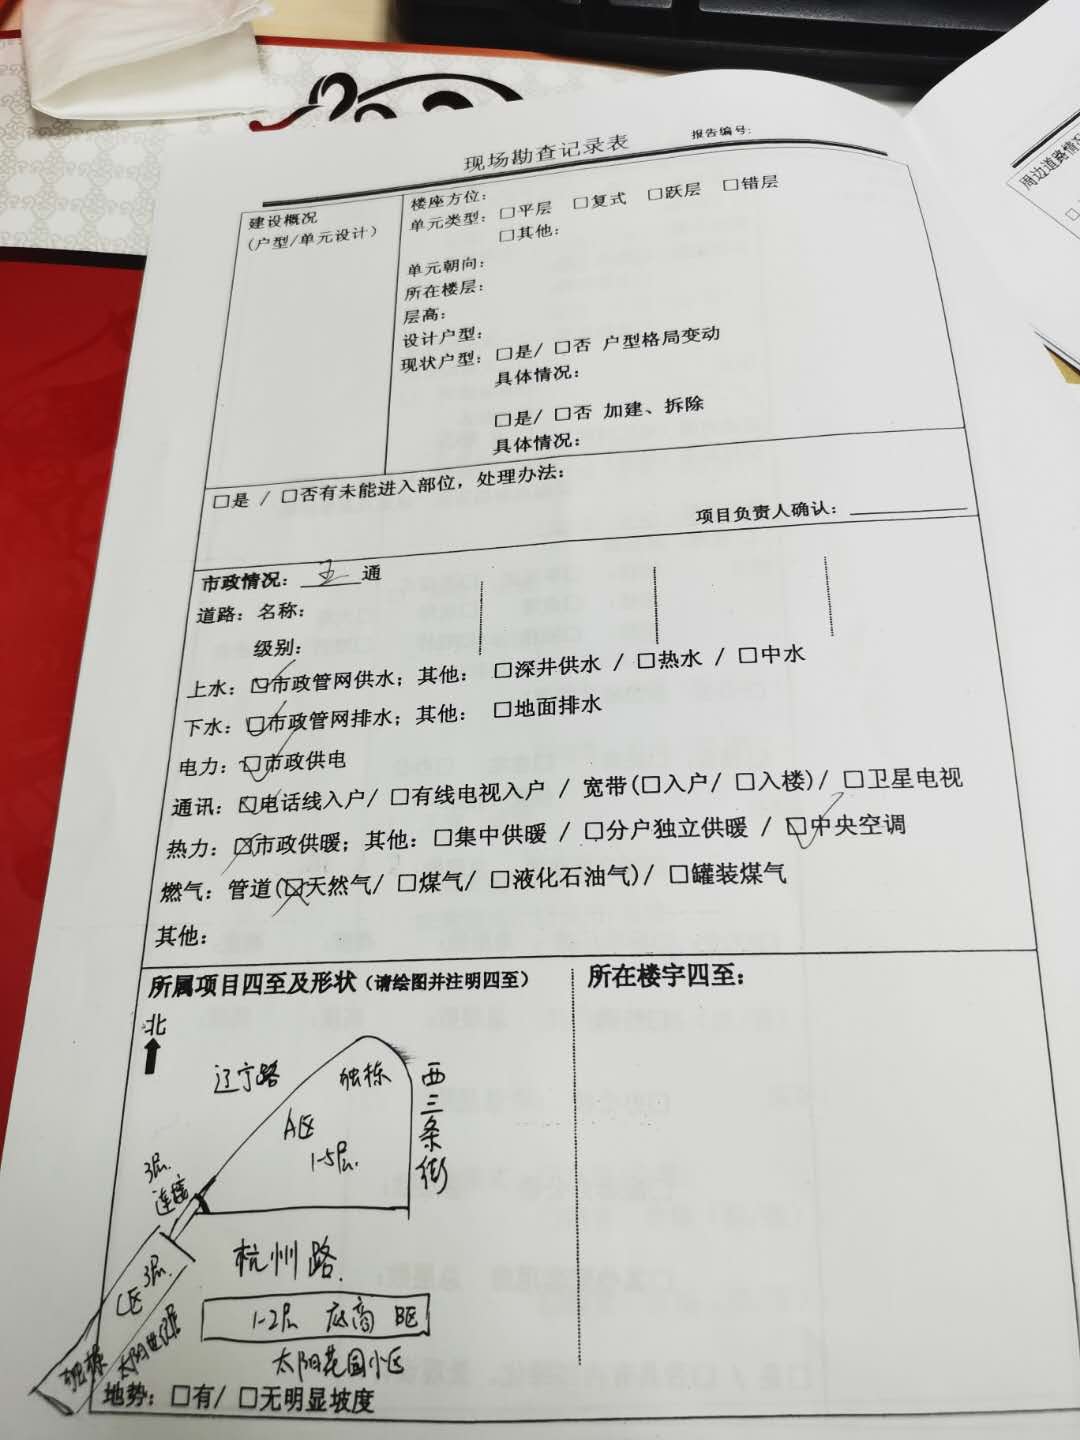 现场勘查记录表
报告编号:
建设概况
(户型/单元设计)
楼座方位:
单元类型: □平层 □复式 □跃层 □错层
□其他:
单元朝向:
所在楼层:
层高:
设计户型:
现状户型: □是/ □否 户型格局变动
具体情况:
□是/ □否 加建、拆除
具体情况:
□是 / □否有未能进入部位, 处理办法:
项目负责人确认:
市政情况: 通
道路: 名称:
级别:
上水: ☑市政管网供水; 其他: □深井供水 / □热水 / □中水
下水: ☑市政管网排水; 其他: □地面排水
电力: ☑市政供电
通讯: ☑电话线入户/ □有线电视入户 / 宽带(□入户/ □入楼)/ □卫星电视
热力: ☒市政供暖; 其他: □集中供暖 / □分户独立供暖 / ☑中央空调
燃气: 管道(☒天然气/ □煤气/ □液化石油气)/ □罐装煤气
其他:
所属项目四至及形状 (请绘图并注明四至)
所在楼宇四至:
北
辽宁路
独栋
A区
1-5层.
西三条街
3层.
连接
杭州路.
3层.
C区
1-2层 底商 B区
独栋
太阳花园小区
地势: □有/ □无明显坡度
周边道路情况